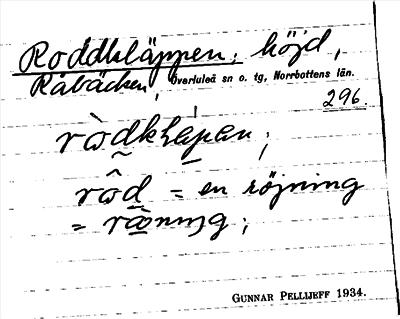 Roddkläppen; höjd,
Råbäcken, Överluleå sn o. tg, Norrbottens län.
296.
ròdkläpan;
rôd = en röjning
= rå̀ning;
GUNNAR PELLIJEFF 1934.